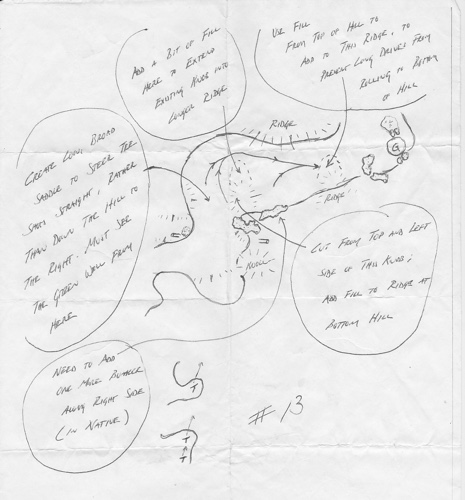 ADD A BIT OF FILL
HERE TO EXTEND
EXISTING KNOB INTO
LONGER RIDGE
USE FILL
FROM TOP OF HILL TO
ADD TO THIS RIDGE, TO
PREVENT LONG DRIVES FROM
ROLLING TO BOTTOM
OF HILL
RIDGE
G
CREATE LONG, BROAD
SADDLE TO STEER TEE
SHOTS STRAIGHT, RATHER
THAN DOWN THE HILL TO
THE RIGHT. MUST SEE
THE GREEN WELL FROM
HERE
RIDGE
KNOLL
CUT FROM TOP AND LEFT
SIDE OF THIS KNOB;
ADD FILL TO RIDGE AT
BOTTOM HILL
NEED TO ADD
ONE MORE BUNKER
ALONG RIGHT SIDE
(IN NATIVE)
T
T
T
# 13